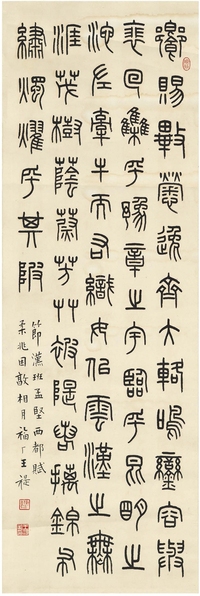 饗賜畢勞逸齊大輅鳴鑾容與
裵回集乎豫章之宇臨乎昆明之
池左牽牛而右織女佀雲漢之無
涯茂樹蔭蔚芳艸被隄若摛錦布
繡燭燿乎其陂
節漢班孟堅西都賦
柔兆困敦相月福厂王禔